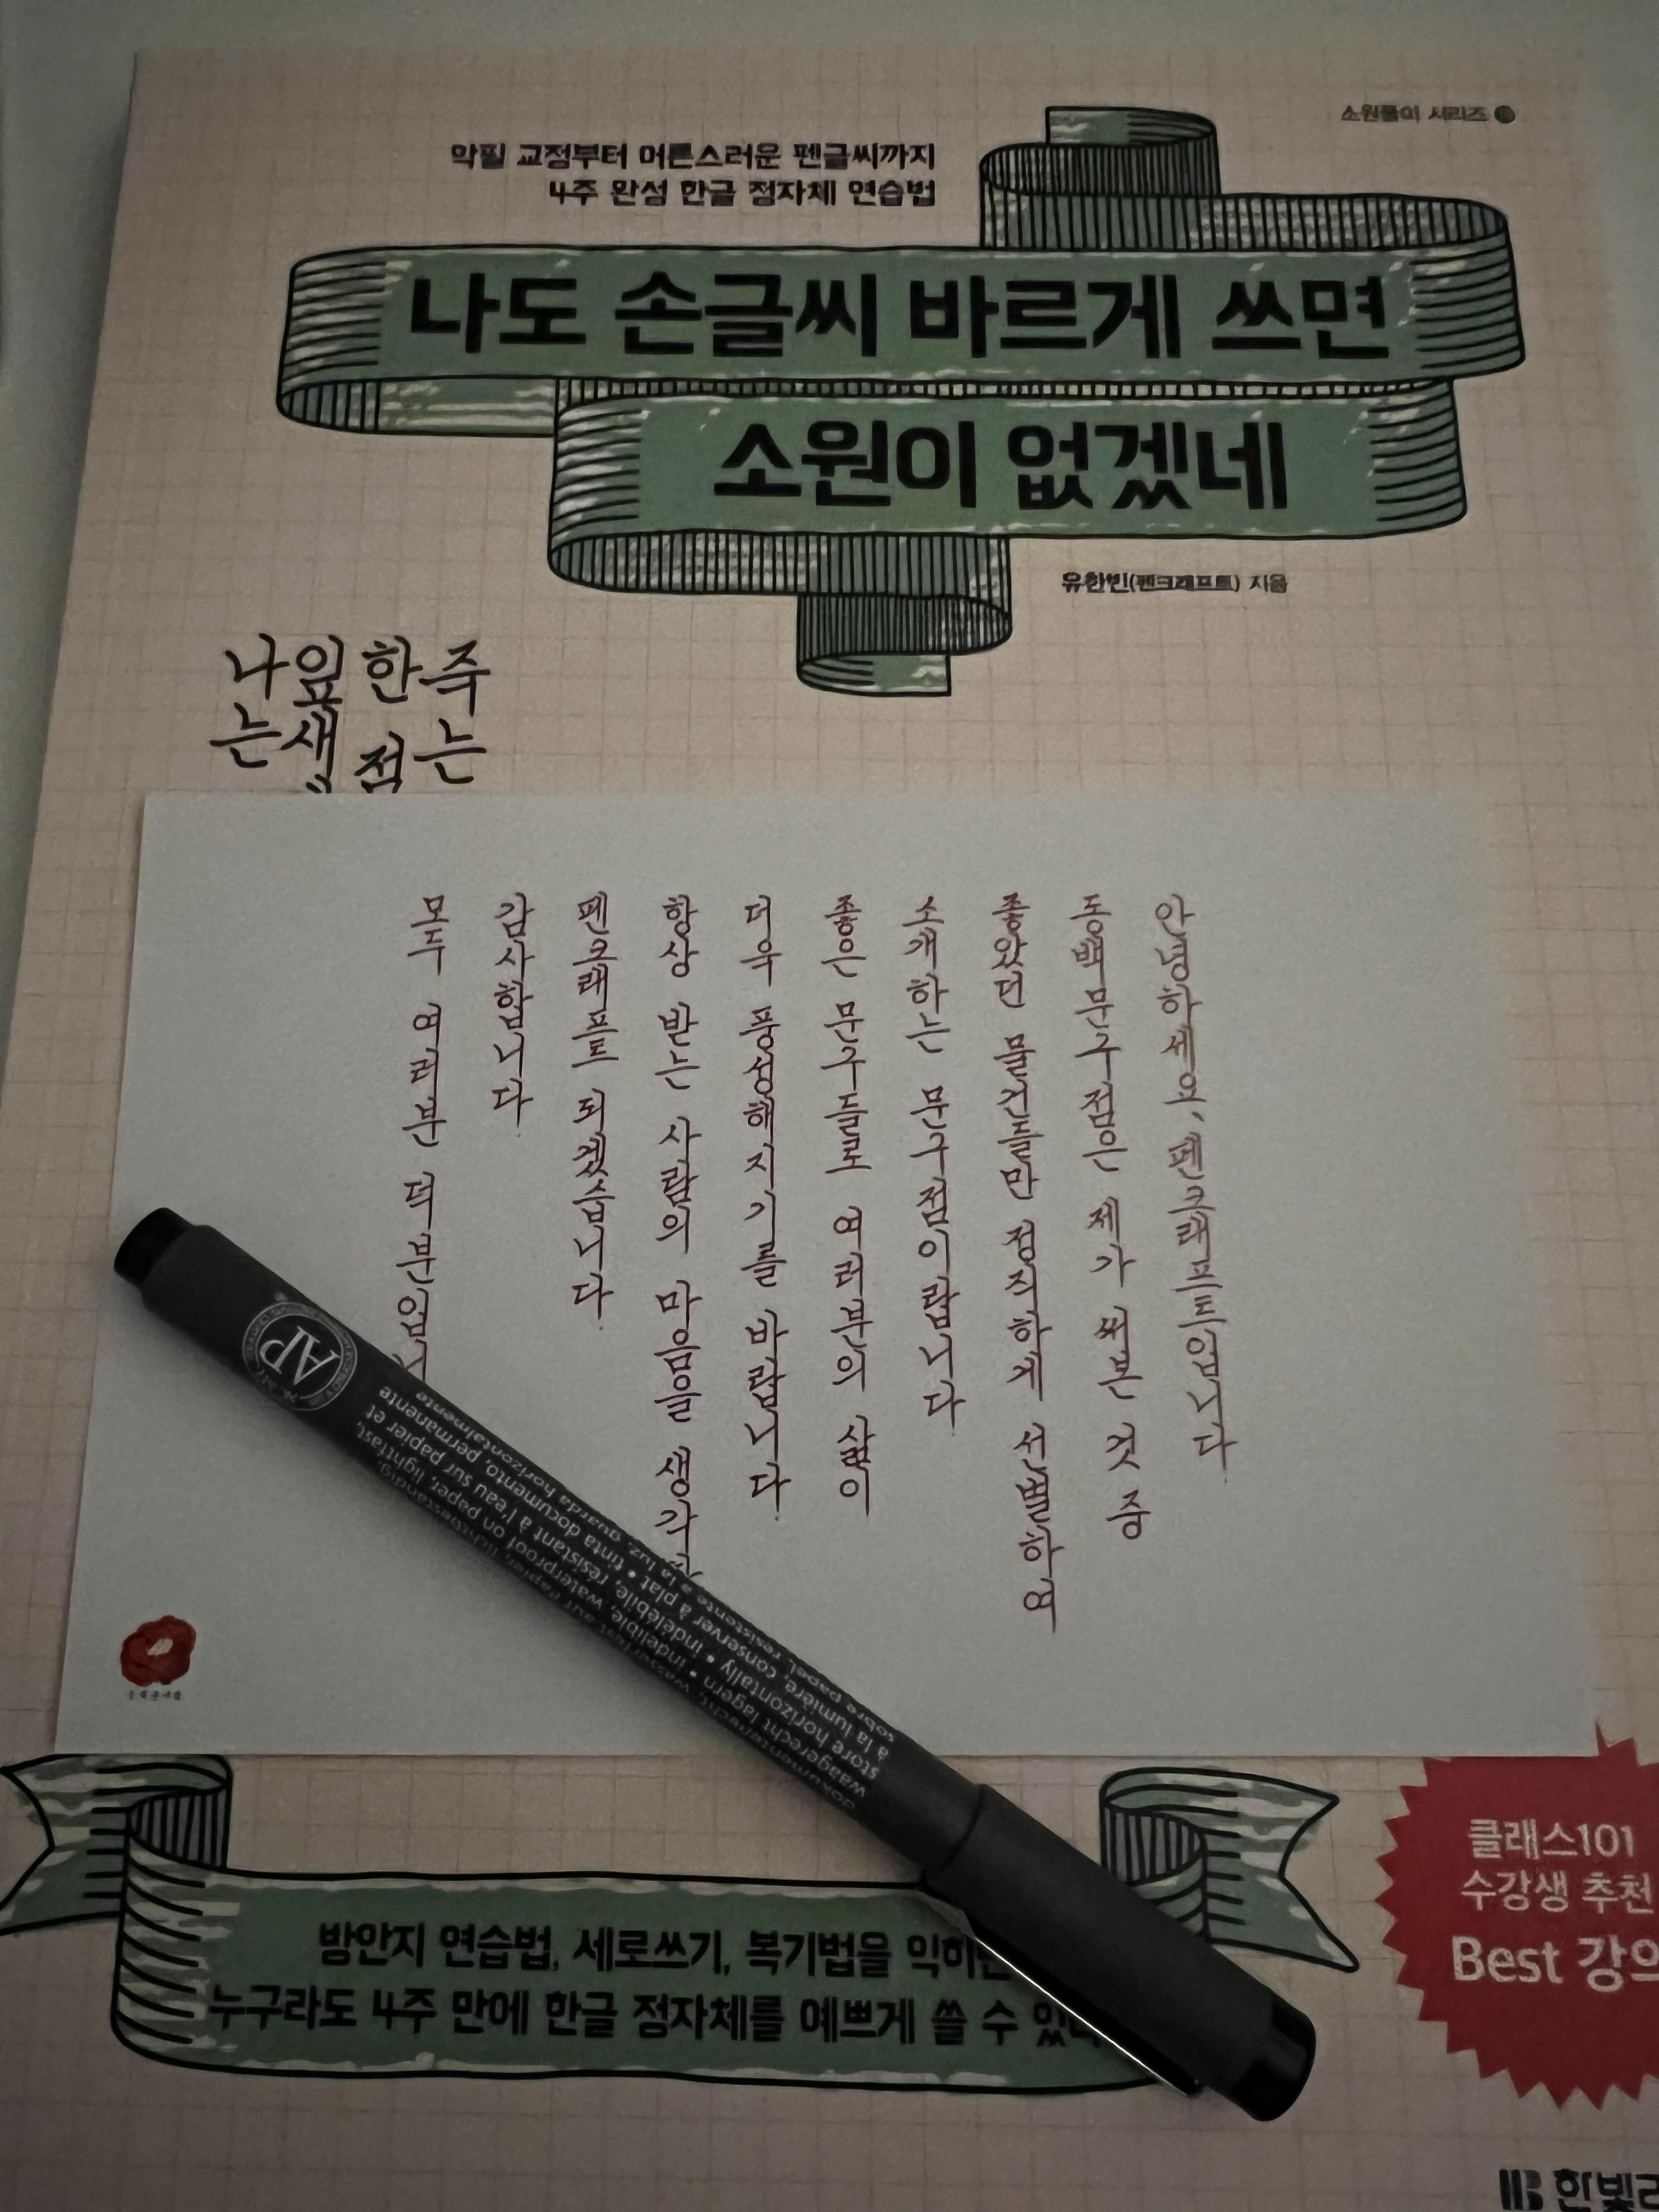 소원풀이 시리즈
악필 교정부터 어른스러운 펜글씨까지
4주 완성 한글 정자체 연습법
나도 손글씨 바르게 쓰면
소원이 없겠네
유한빈(펜크래프트) 지음
죽는
한 점
잎새
나는
안녕하세요, 펜크래프트입니다
동백문구점은 제가 써본 것 중
좋았던 물건들만 정직하게 선별하여
소개하는 문구점이랍니다.
좋은 문구들로 여러분의 삶이
더욱 풍성해지기를 바랍니다.
항상 받는 사람의 마음을 생각
펜크래프트 되겠습니다.
감사합니다.
모두 여러분 덕분입
AP
waagerecht lagern • indelible, waterproof on paper, lightfast,
store horizontally • indélébile, résistant à l'eau sur papier et
à la lumière, conserver à plat • tinta documento, permanente
방안지 연습법, 세로쓰기, 복기법을
누구라도 4주 만에 한글 정자체를 예쁘게 쓸 수
클래스101
수강생 추천
Best 강의